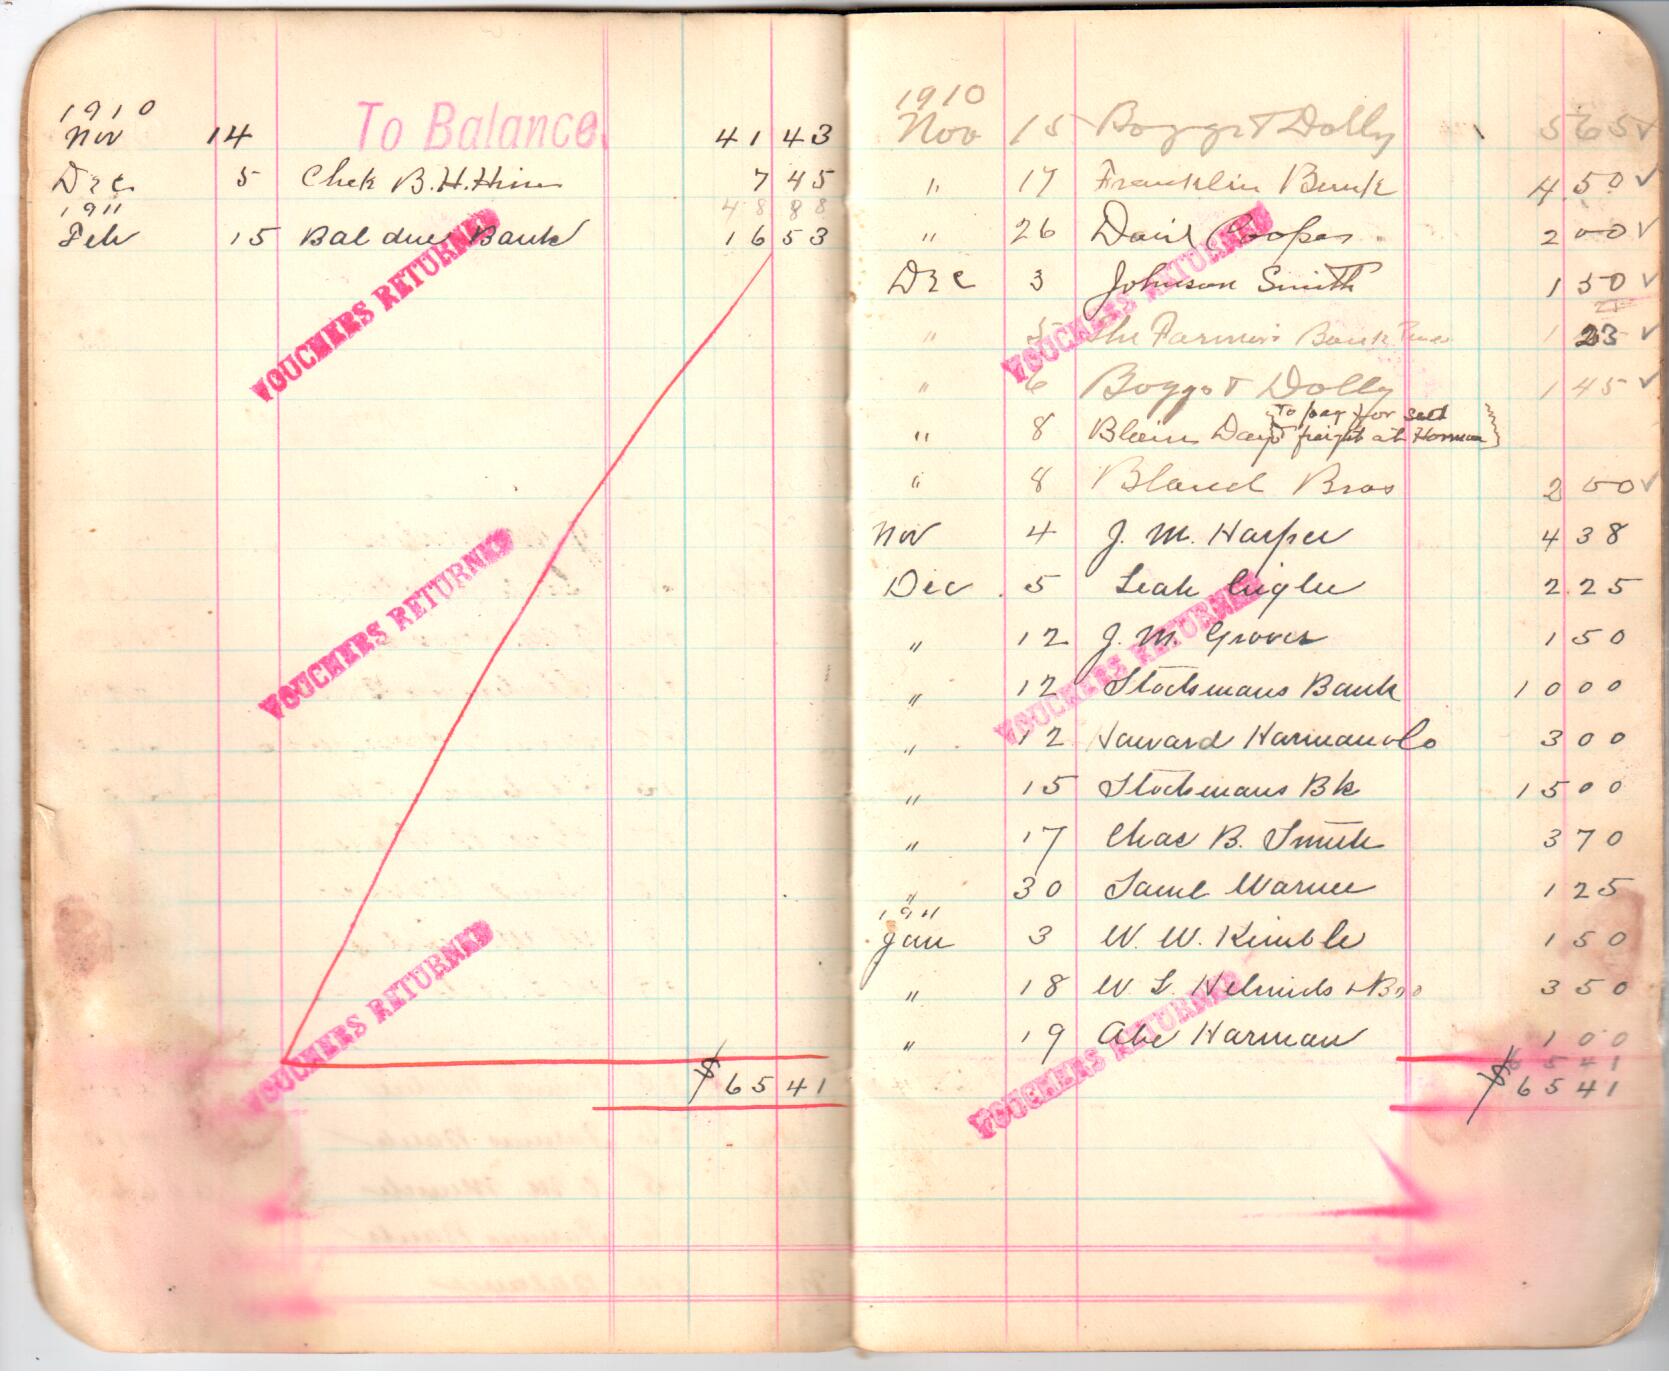 1910
Nov 14 To Balance 41 43
Dec 5 Chek B.H. 7 45
1911
48 88
Feb 15 Bal due Bank 16 53
VOUCHERS RETURNED
VOUCHERS RETURNED
VOUCHERS RETURNED
$65 41
1910
Nov 15 Boggs & Dolly 5 65 ✓
" 17 Franklin Bank 4 50 ✓
" 26 Cooper 2 00 ✓
Dec 3 Johnson Smith 1 50 ✓
" 5 The Farmers Bank 1 ✓
" 6 Boggs & Dolly 1 45 ✓
To pay for
" 8 Day freight at
" 8 Bland Bros 2 00 ✓
Nov 4 J. M. Harper 4 38
Dec 5 Leah 2 25
" 12 J. M. Grover 1 50
" 12 Stockmans Bank 10 00
" 12 Harman Co 3 00
" 15 Stockmans Bk 15 00
" 17 Chas B. Smith 3 70
" 30 Saml Warner 1 25
1911
Jan 3 W. W. Kimble 1 50
" 18 & Bro 3 50
" 19 Abe Harman 1 00
65 41
$65 41
VOUCHERS RETURNED
VOUCHERS RETURNED
VOUCHERS RETURNED